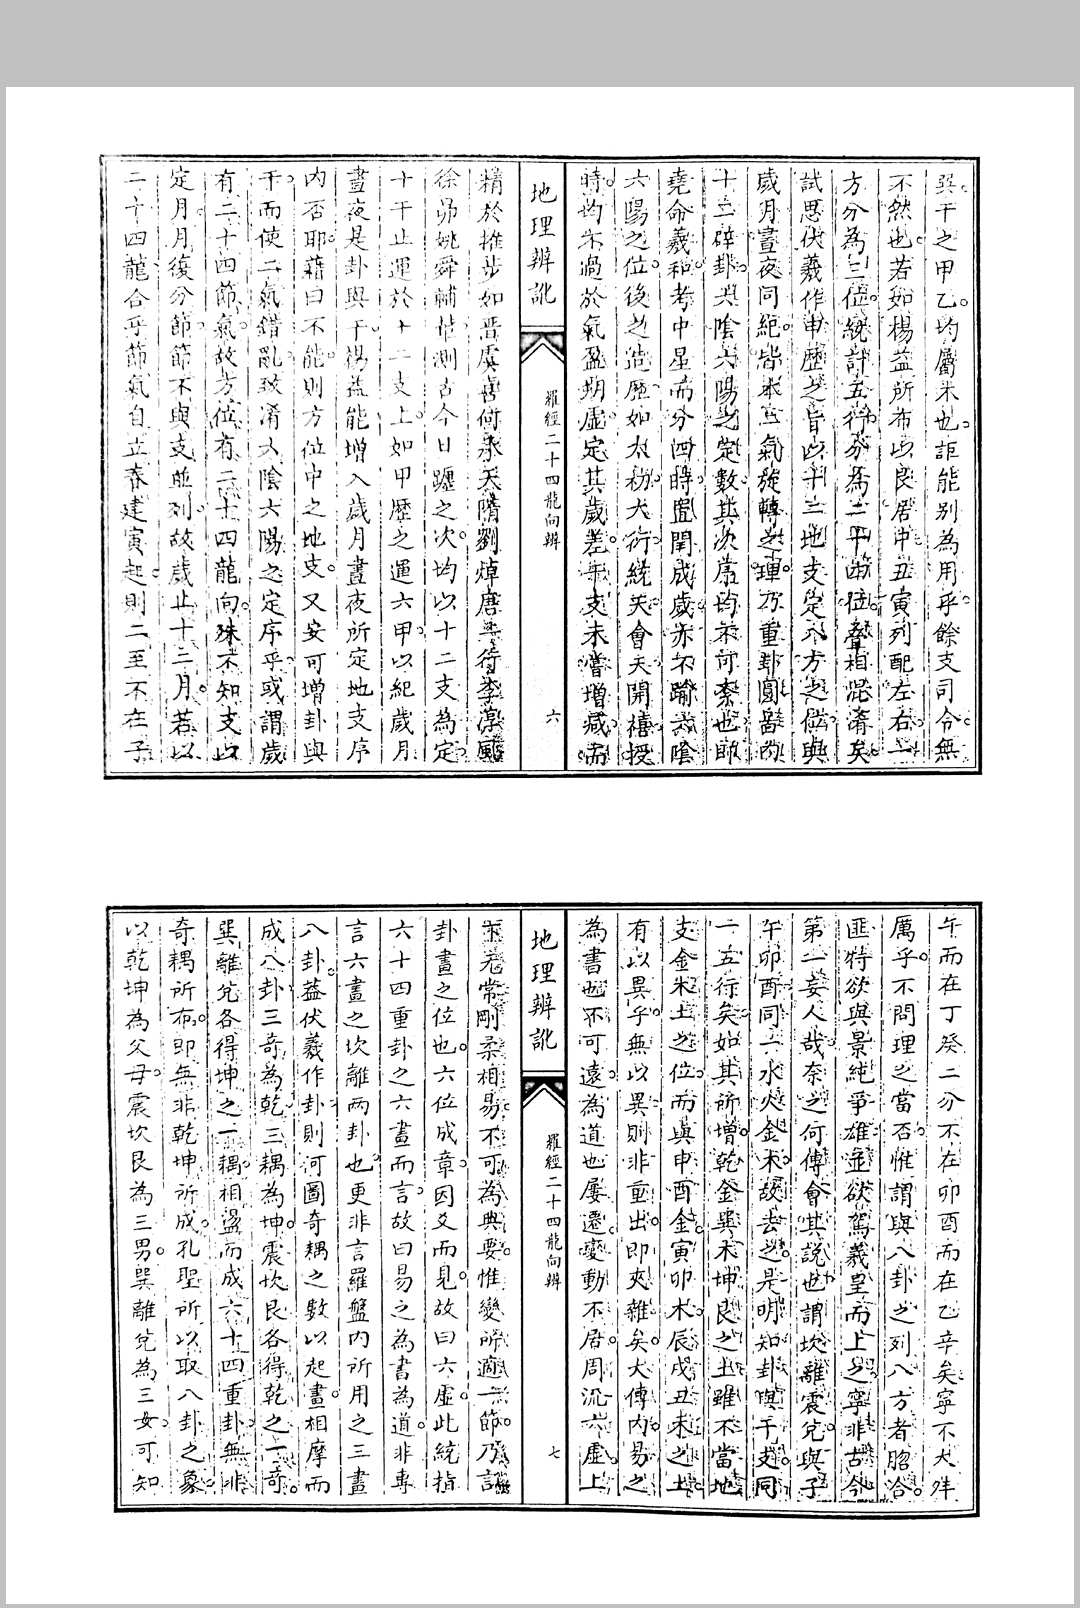 巽干之甲乙均屬木也詎能別為用乎餘支司令無
不然也若如楊益所布以艮居中丑寅列配左右一
方分為三位統計五行分為二十四位聲相混淆矣
試思伏羲作甲歷之旨以十二地支定八方之位與
歲月晝夜同紀皆本二氣旋轉之理乃重卦圓圖內
十二辟卦六陰六陽之定數其次序均不可紊也即
堯命羲和考中星而分四時置閏成歲亦不踰六陰
六陽之位後之造歷如太初大衍統天會天開禧授
時均不過於氣盈朔虛定其歲差干支未嘗增減而
地理辨訛
羅經二十四龍向辨
六
精於推步如晉虞喜何承天隋劉焯唐一行李淳風
徐昂姚舜輔皆測古今日躔之次均以十二支為定
十干止運於十二支上如甲歷之運六甲以紀歲月
晝夜是卦與干楊益能增入歲月晝夜所定地支序
內否耶藉曰不能則方位中之地支又安可增卦與
干而使二氣錯亂致淆六陰六陽之定序乎或謂歲
有二十四節氣故方位有二十四龍向殊不知支以
定月月復分節節不與支並列故歲止十二月若以
二十四龍合乎節氣自立春建寅起則二至不在子
午而在丁癸二分不在卯酉而在乙辛矣寧不大牂
厲乎不問理之當否惟謂與八卦之列八方者脗合
匪特欲與景純爭雄並欲駕羲皇而上之寧非古今
第一妄人哉奈之何傅會其說也謂坎離震兌與子
午卯酉同一水火金木故去之是明知卦與干支同
一五行矣如其所增乾金巽木坤艮之土雖不當地
支金木土之位而與申酉金寅卯木辰戌丑未之土
有以異乎無以異則非重出即夾雜矣大傳內易之
為書也不可遠為道也屢遷變動不居周流六虛上
地理辨訛
羅經二十四龍向辨
七
下无常剛柔相易不可為典要惟變所適一節乃言
卦畫之位也六位成章因爻而見故曰六虛此統指
六十四重卦之六畫而言故曰易之為書為道非專
言六畫之坎離兩卦也更非言羅盤內所用之三畫
八卦蓋伏羲作卦則河圖奇耦之數以起畫相摩而
成八卦三奇為乾三耦為坤震坎艮各得乾之一奇
巽離兌各得坤之一耦相盪而成六十四重卦無非
奇耦所布即無非乾坤所成孔聖所以取八卦之象
以乾坤為父母震坎艮為三男巽離兌為三女可知